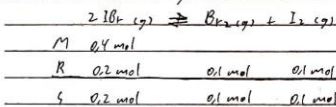 2 IBr (g) ⇌ Br2 (g) + I2 (g)
M 0,4 mol
R 0.2 mol 0,1 mol 0,1 mol
S 0,2 mol 0,1 mol 0.1 mol